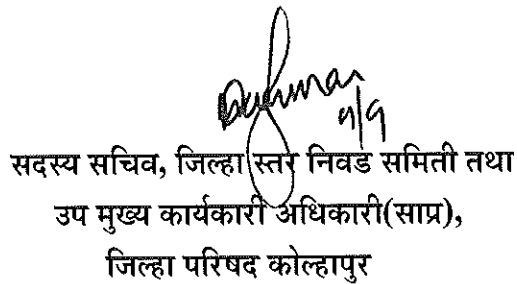 सदस्य सचिव, जिल्हा स्तर निवड समिती तथा
उप मुख्य कार्यकारी अधिकारी(साप्र),
जिल्हा परिषद कोल्हापुर